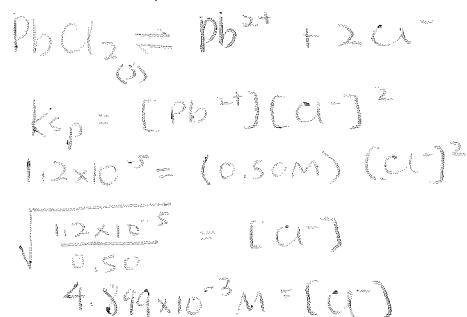 PbCl₂(s) ⇌ Pb²⁺ + 2Cl⁻
Ksp = [Pb²⁺][Cl⁻]²
1.2×10⁻⁵ = (0.50M) (Cl⁻]²
√(1.2×10⁻⁵ / 0.50) = [Cl⁻]
4.899×10⁻³ M = [Cl⁻)